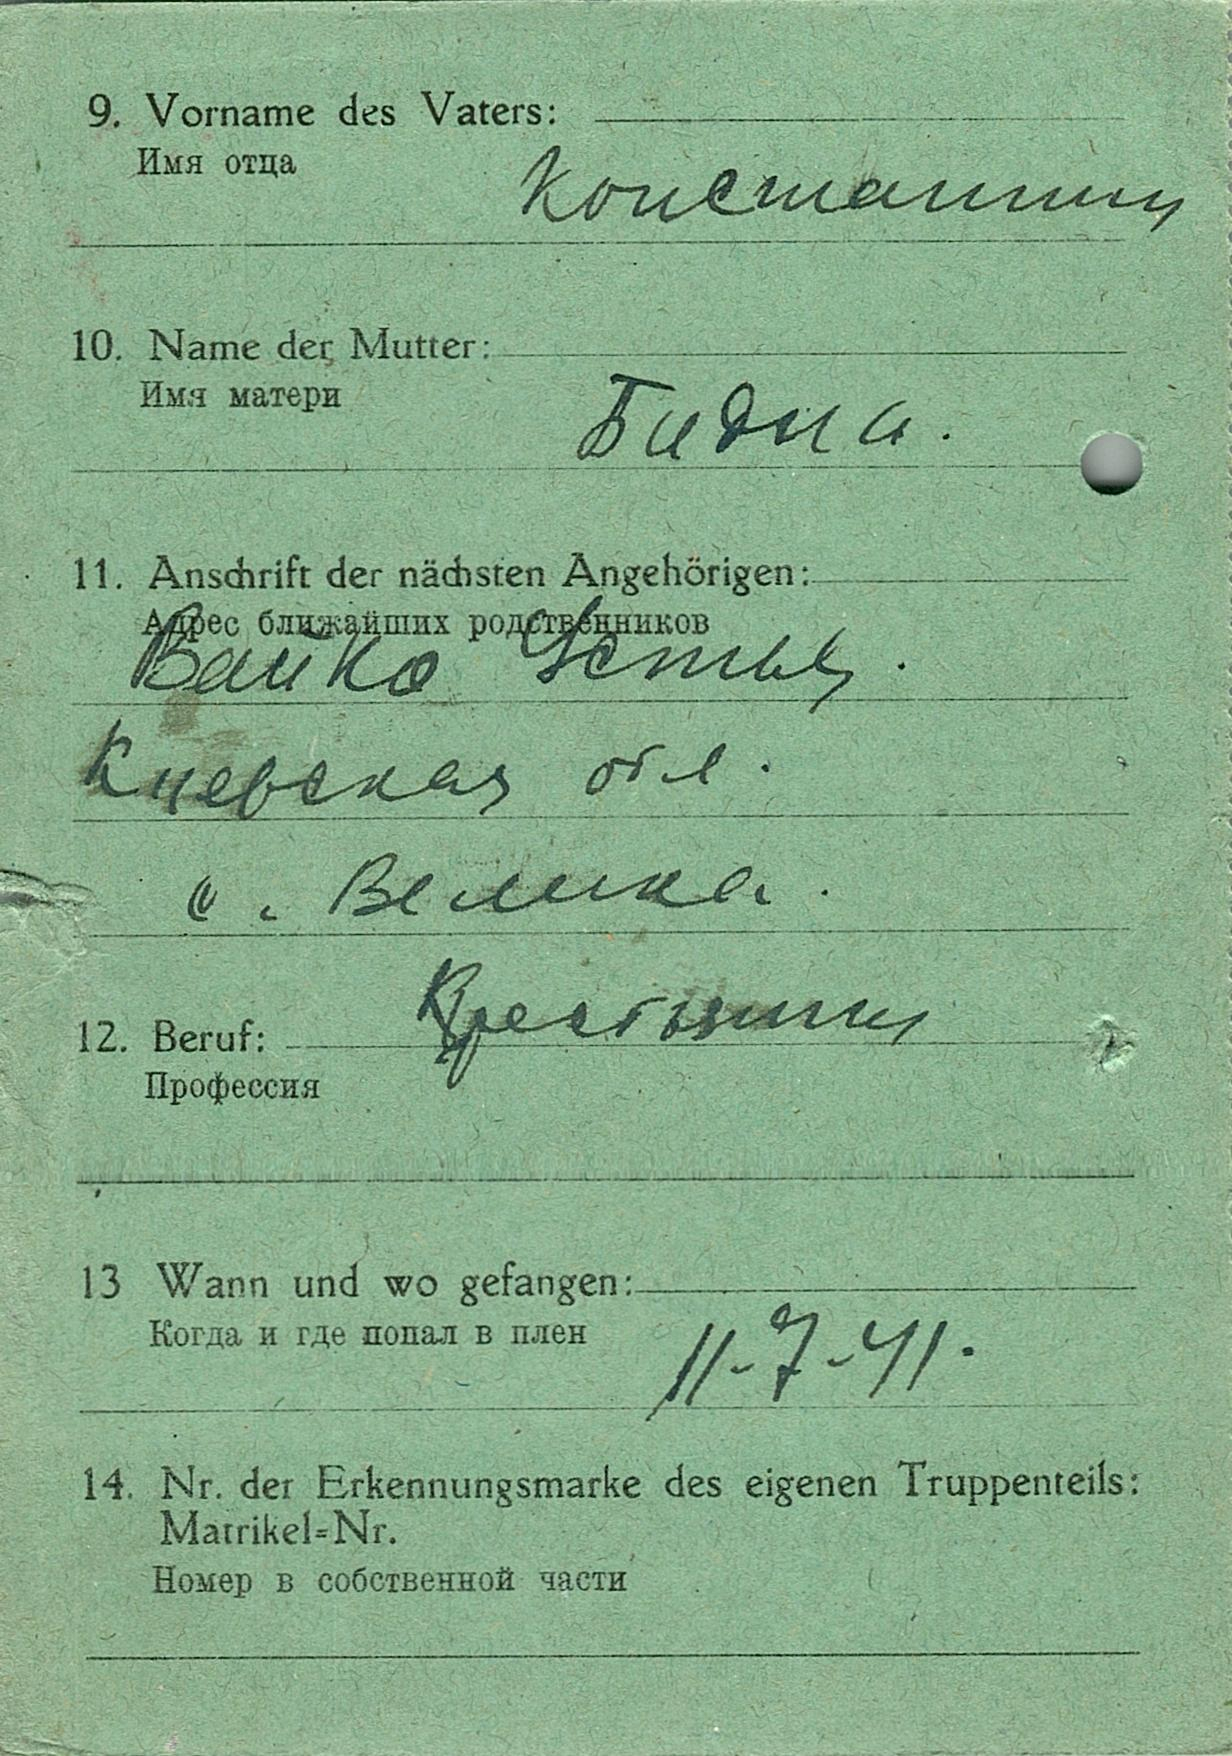 9. Vorname des Vaters:
Имя отца
Константин
10. Name der Mutter:
Имя матери
Бидна.
11. Anschrift der nächsten Angehörigen:
Адрес ближайших родственников
Вайко
Киевская обл.
с. Велика.
12. Beruf: Крестьянин
Профессия
13 Wann und wo gefangen:
Когда и где попал в плен
11-7-41.
14. Nr. der Erkennungsmarke des eigenen Truppenteils:
Matrikel=Nr.
Номер в собственной части